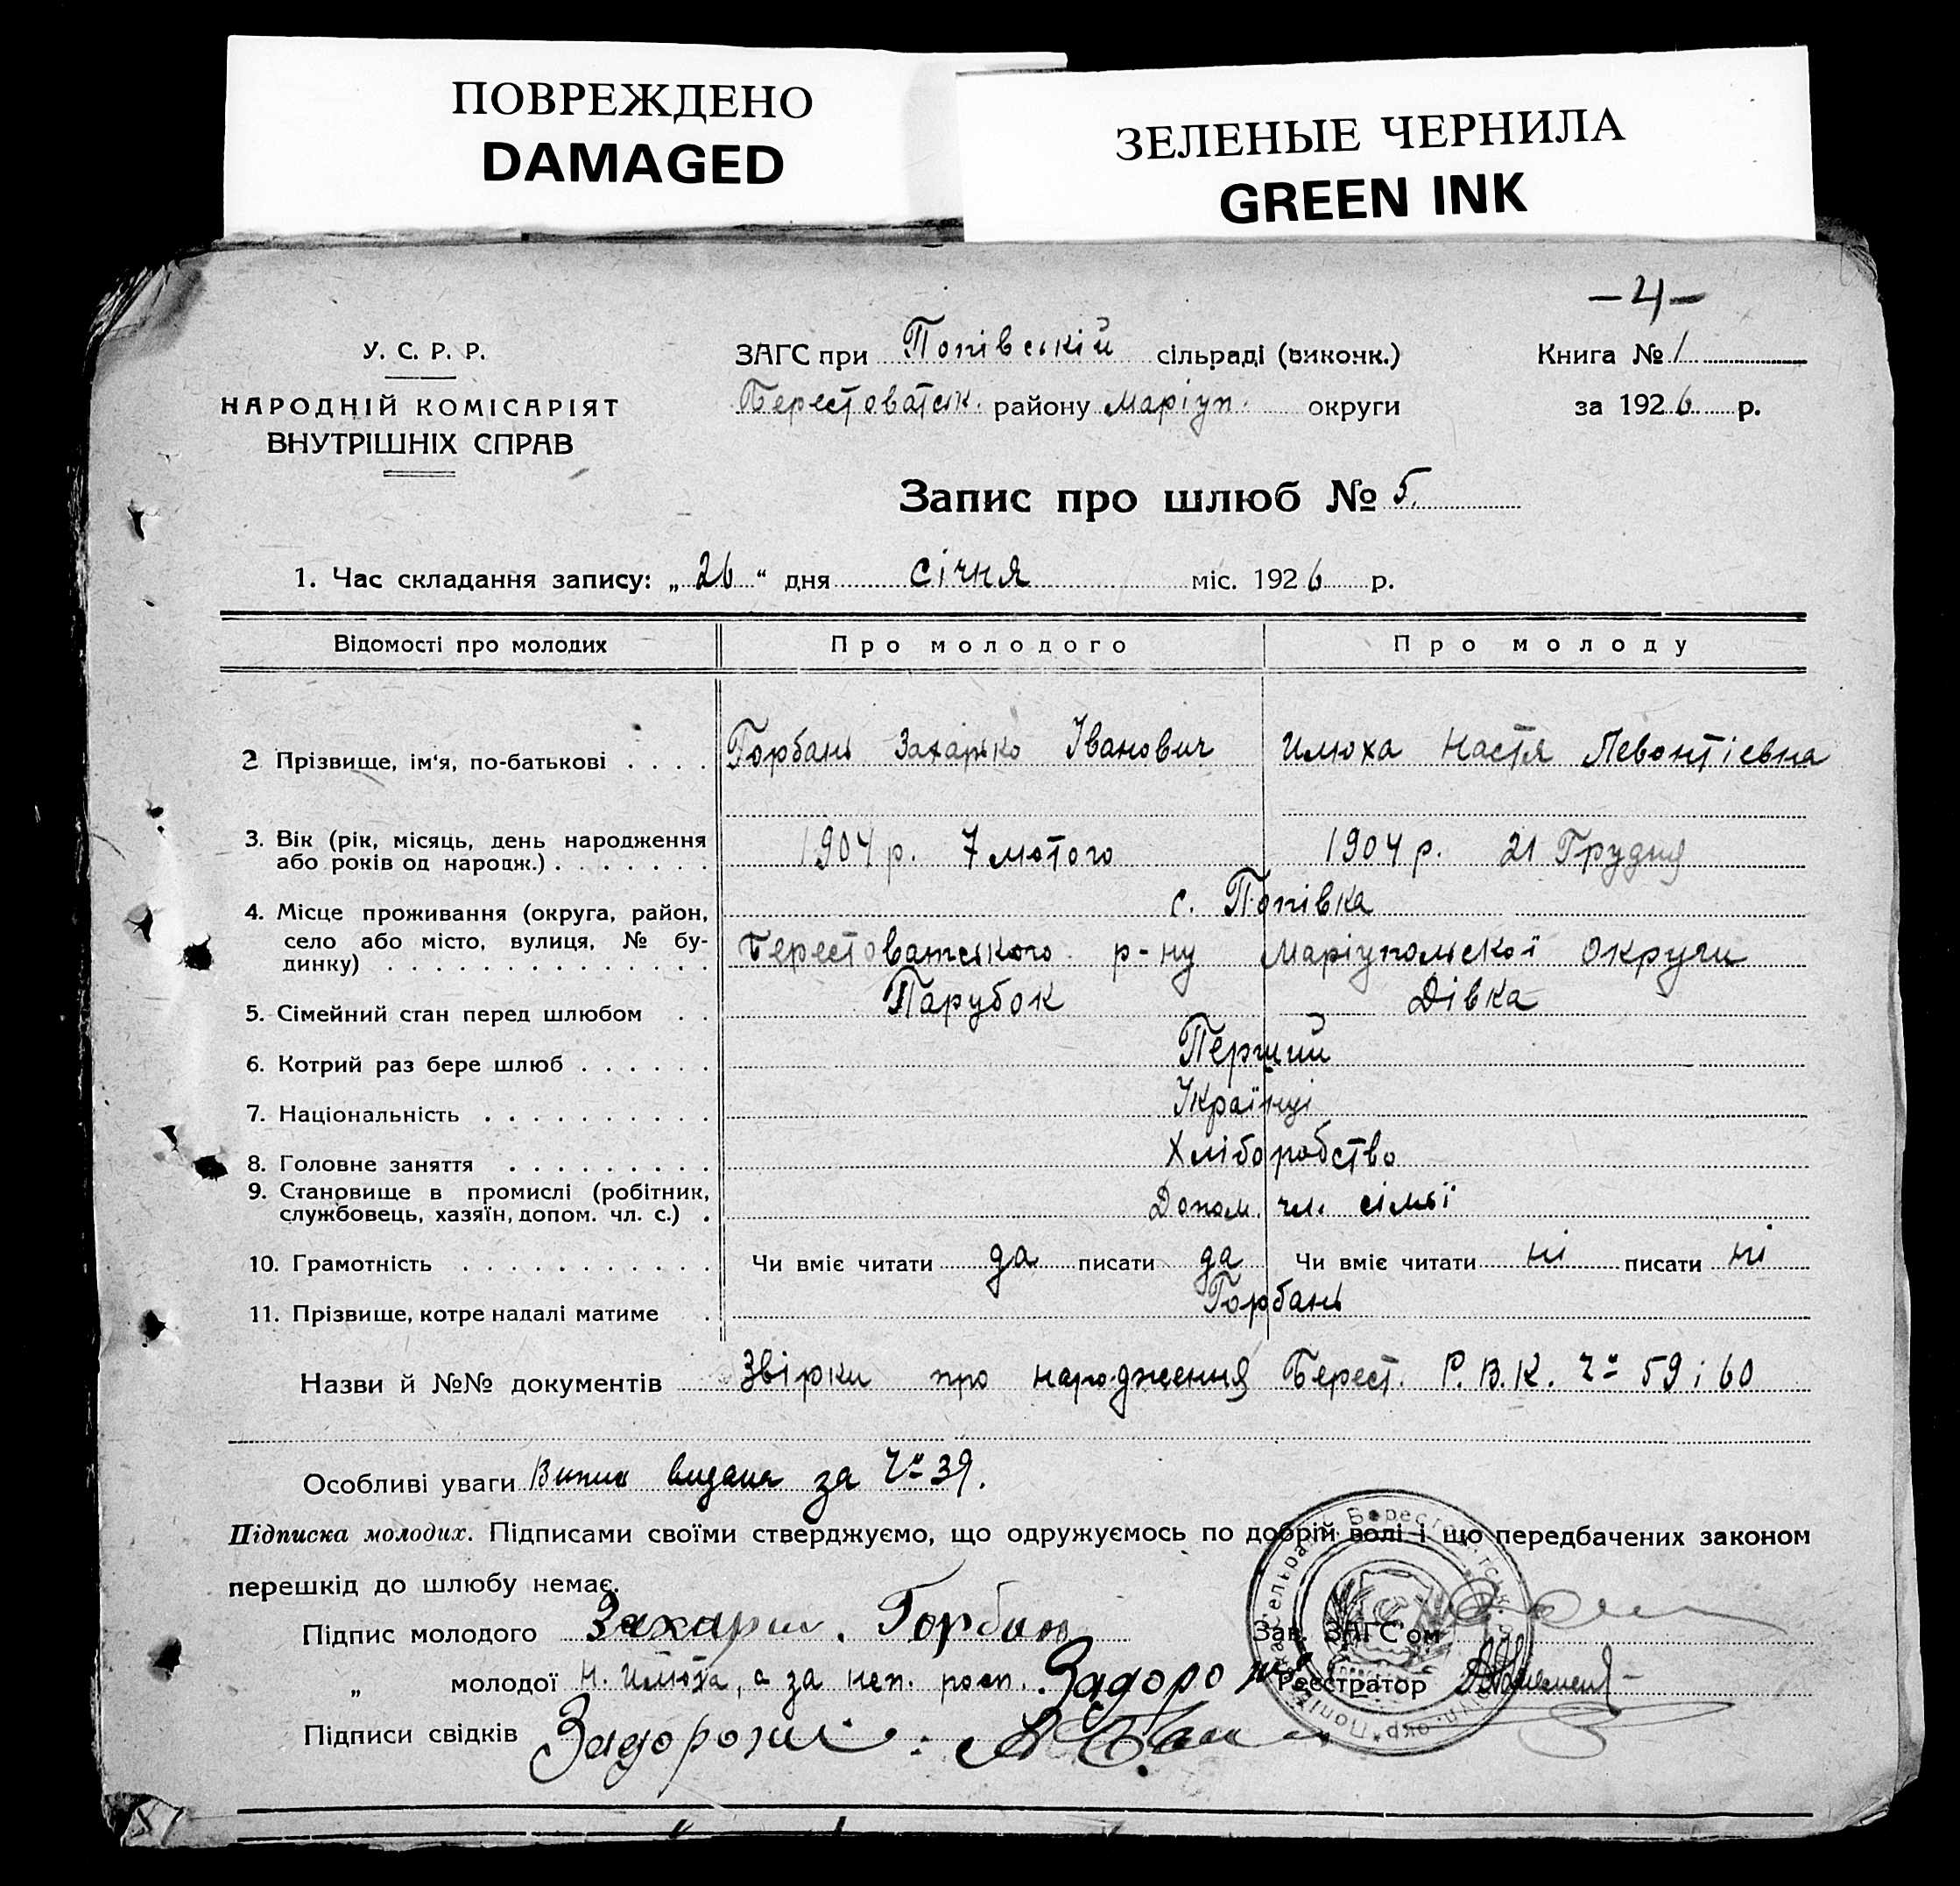 ПОВРЕЖДЕНО
DAMAGED
ЗЕЛЕНЫЕ ЧЕРНИЛА
GREEN INK
-4-
У. С. Р. Р.
НАРОДНІЙ КОМІСАРІЯТ
ВНУТРІШНІХ СПРАВ
ЗАГС при Попівській сільраді (виконк.)
Берестоватськ. району Маріуп. округи
Книга № 1
за 1926 р.
Запис про шлюб № 5.
1. Час складання запису: „ 26 “ дня січня міс. 1926 р.
Відомості про молодих Про молодого Про молоду
2 Прізвище, ім'я, по-батькові . . . . Горбань Захарько Іванович Илюха Настя Левонтіевна
3. Вік (рік, місяць, день народження
або років од народж.) . . . . . . . 1904 р. 7 лютого 1904 р. 21 Грудня
4. Місце проживання (округа, район, с. Попівка
село або місто, вулиця, № бу-
динку) . . . . . . . . . . . . . . Берестоватського р-ну Маріупольскої округи
5. Сімейний стан перед шлюбом . . Парубок Дівка
6. Котрий раз бере шлюб . . . . . . Перший
7. Національність . . . . . . . . . . Українці
8. Головне заняття . . . . . . . . . Хліборобство
9. Становище в промислі (робітник,
службовець, хазяїн, допом. чл. с.) . Допом. чл. сімьї
10. Грамотність . . . . . . . . . . . Чи вміє читати да писати да Чи вміє читати ні писати ні
11. Прізвище, котре надалі матиме . Горбань
Назви й №№ документів Звірки про народження Берест. Р.В.К. Ч- 59 і 60
Особливі уваги видана за Ч- 39.
Підписка молодих. Підписами своїми стверджуємо, що одружуємось по добрій волі і що передбачених законом
перешкід до шлюбу немає.
Підпис молодого Горбань
Зав. ЗАГС'ом
„ молодої Н. Илюха, а за неп. росп.
Реєстратор
Підписи свідків